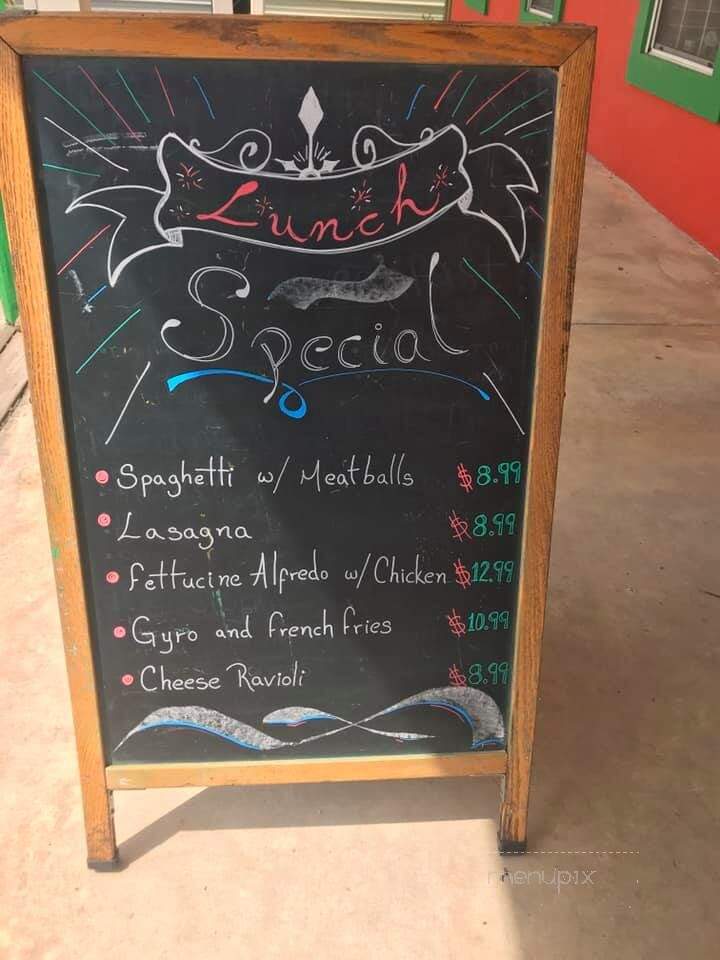 Lunch
Special
Spaghetti w/ Meatballs $8.99
Lasagna $8.99
Fettucine Alfredo w/Chicken $12.99
Gyro and french fries $10.99
Cheese Ravioli $8.99
menupix